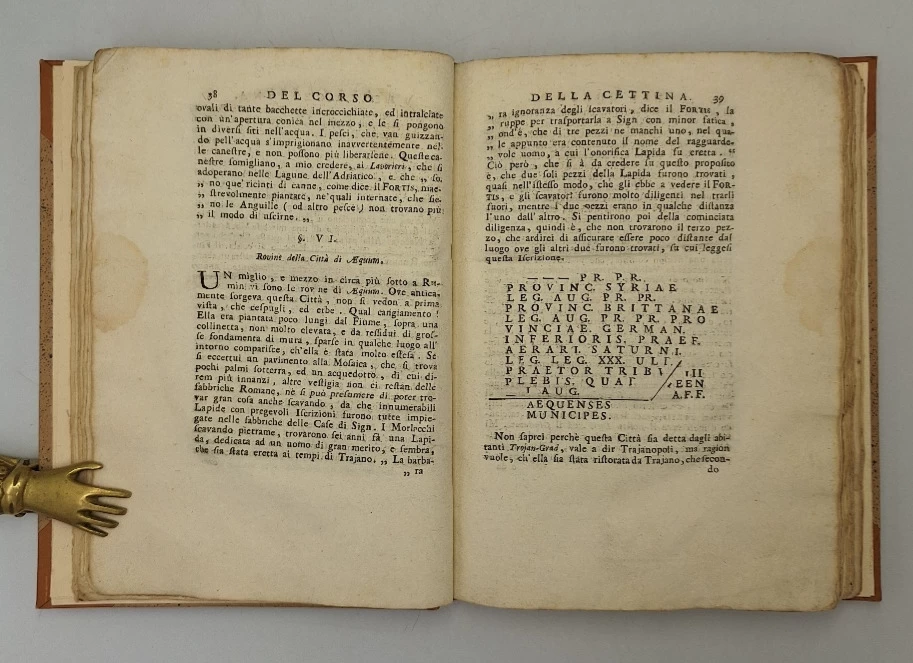 38 DEL CORSO
ovali di tante bacchette incrocicchiate, ed intralciate
con un'apertura conica nel mezzo, e le si pongono
in diversi siti nell'acqua. I pesci, che van guizzan-
do pell'acqua s'imprigionano inavvertentemente nel-
le canestre, e non possono più liberarsene. Queste ca-
nestre somigliano, a mio credere, ai Lavorieri, che si
adoperano nelle Lagune dell'Adriatico, e che „ so-
„ no que'ricinti di canne, come dice il FORTIS, mae-
„ strevolmente piantate, ne'quali internate, che sie-
„ no le Anguille (od altro pesce) non trovano più
„ il modo di uscirne. „
§. VI.
Rovine della Città di Æquum.
UN miglio, e mezzo in circa più sotto a Ru-
min vi sono le rovine di Æquum. Ove antica-
mente sorgeva questa Città, non si vedon a prima
vista, che cespugli, ed erbe. Qual cangiamento!
Ella era piantata poco lungi dal Fiume, sopra una
collinetta, non molto elevata, e da residui di gros-
se fondamenta di mura, sparse in qualche luogo all'
intorno comparisce, ch'ella è stata molto estesa. Se
si eccettui un pavimento alla Mosaica, che si trova
pochi palmi sotterra, ed un acquedotto, di cui di-
rem più innanzi, altre vestigia non ci restan delle
fabbriche Romane, nè si può presumere di poter tro-
var gran cosa anche scavando, da che innumerabili
Lapide con pregevoli Iscrizioni furono tutte impie-
gate nelle fabbriche delle Case di Sign. I Morlacchi
scavando pietrame, trovarono sei anni fà una Lapi-
da, dedicata ad un uomo di gran merito, e sembra,
che sia stata eretta ai tempi di Trajano. „ La barba-
„ ra
DELLA CETTINA. 39
„ ra ignoranza degli scavatori, dice il FORTIS, la
„ ruppe per trasportarla a Sign con minor fatica,
„ ond'è, che di tre pezzi ne manchi uno, nel qua-
„ le appunto era contenuto il nome del ragguarde-
„ vole uomo, a cui l'onorifica Lapida fu eretta. "
Ciò però, che si à da credere su questo proposito
è, che due soli pezzi della Lapida furono trovati,
quasi nell'istesso modo, che gli ebbe a vedere il FOR-
TIS, e gli scavatori furono molto diligenti nel trarli
fuori, mentre i due pezzi erano in qualche distanza
l'uno dall'altro. Si pentirono poi della cominciata
diligenza, quindi è, che non trovarono il terzo pez-
zo, che ardirei di assicurare essere poco distante dal
luogo ove gli altri due furono trovati, su cui leggesi
questa Iscrizione.
— — — PR. PR.
PROVINC. SYRIAE
LEG. AUG. PR. PR.
PROVINC. BRITTANAE
LEG. AUG. PR. PR. PRO
VINCIAE. GERMAN.
INFERIORIS. PRAEF.
AERARI. SATURNI.
LEG. LEG. XXX. ULP
PRAETOR TRIB
PLEBIS. QUAE
AUG. A.F.F.
AEQUENSES
MUNICIPES.
Non saprei perchè questa Città sia detta dagli abi-
tanti Trojan-Grad, vale a dir Trajanopoli, ma ragion
vuole, ch'ella sia stata ristorata da Trajano, che secon-
do